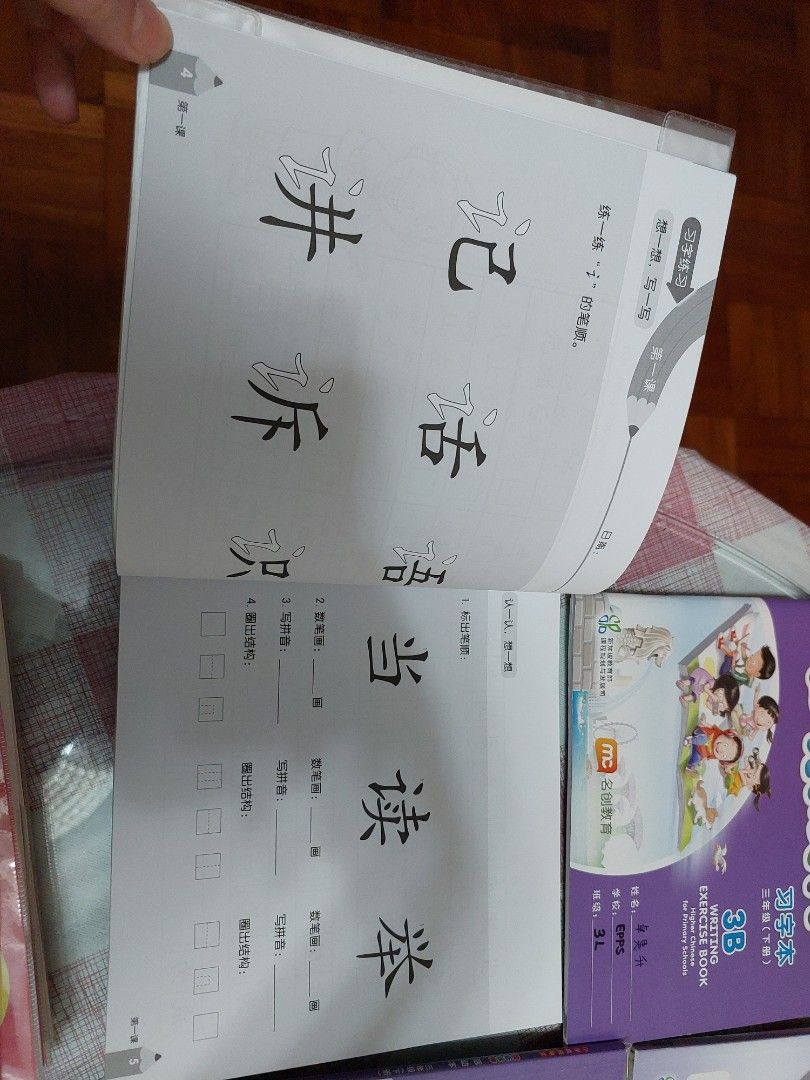 习字练习
第一课
日期：
想一想，写一写
练一练“讠”的笔顺。
记 话 语
讲 诉 识
4 第一课
认一认，想一想
1. 标出笔顺：
当 读 举
2. 数笔画：____画 数笔画：____画 数笔画：____画
3. 写拼音：____ 写拼音：____ 写拼音：____
4. 圈出结构： 圈出结构： 圈出结构：
第一课 5
新加坡教育部
课程规划与发展司
mc 名创教育
习字本
三年级（下册）
3B
WRITING
EXERCISE BOOK
Higher Chinese
for Primary Schools
姓名：
学校： EPPS
班级： 3L